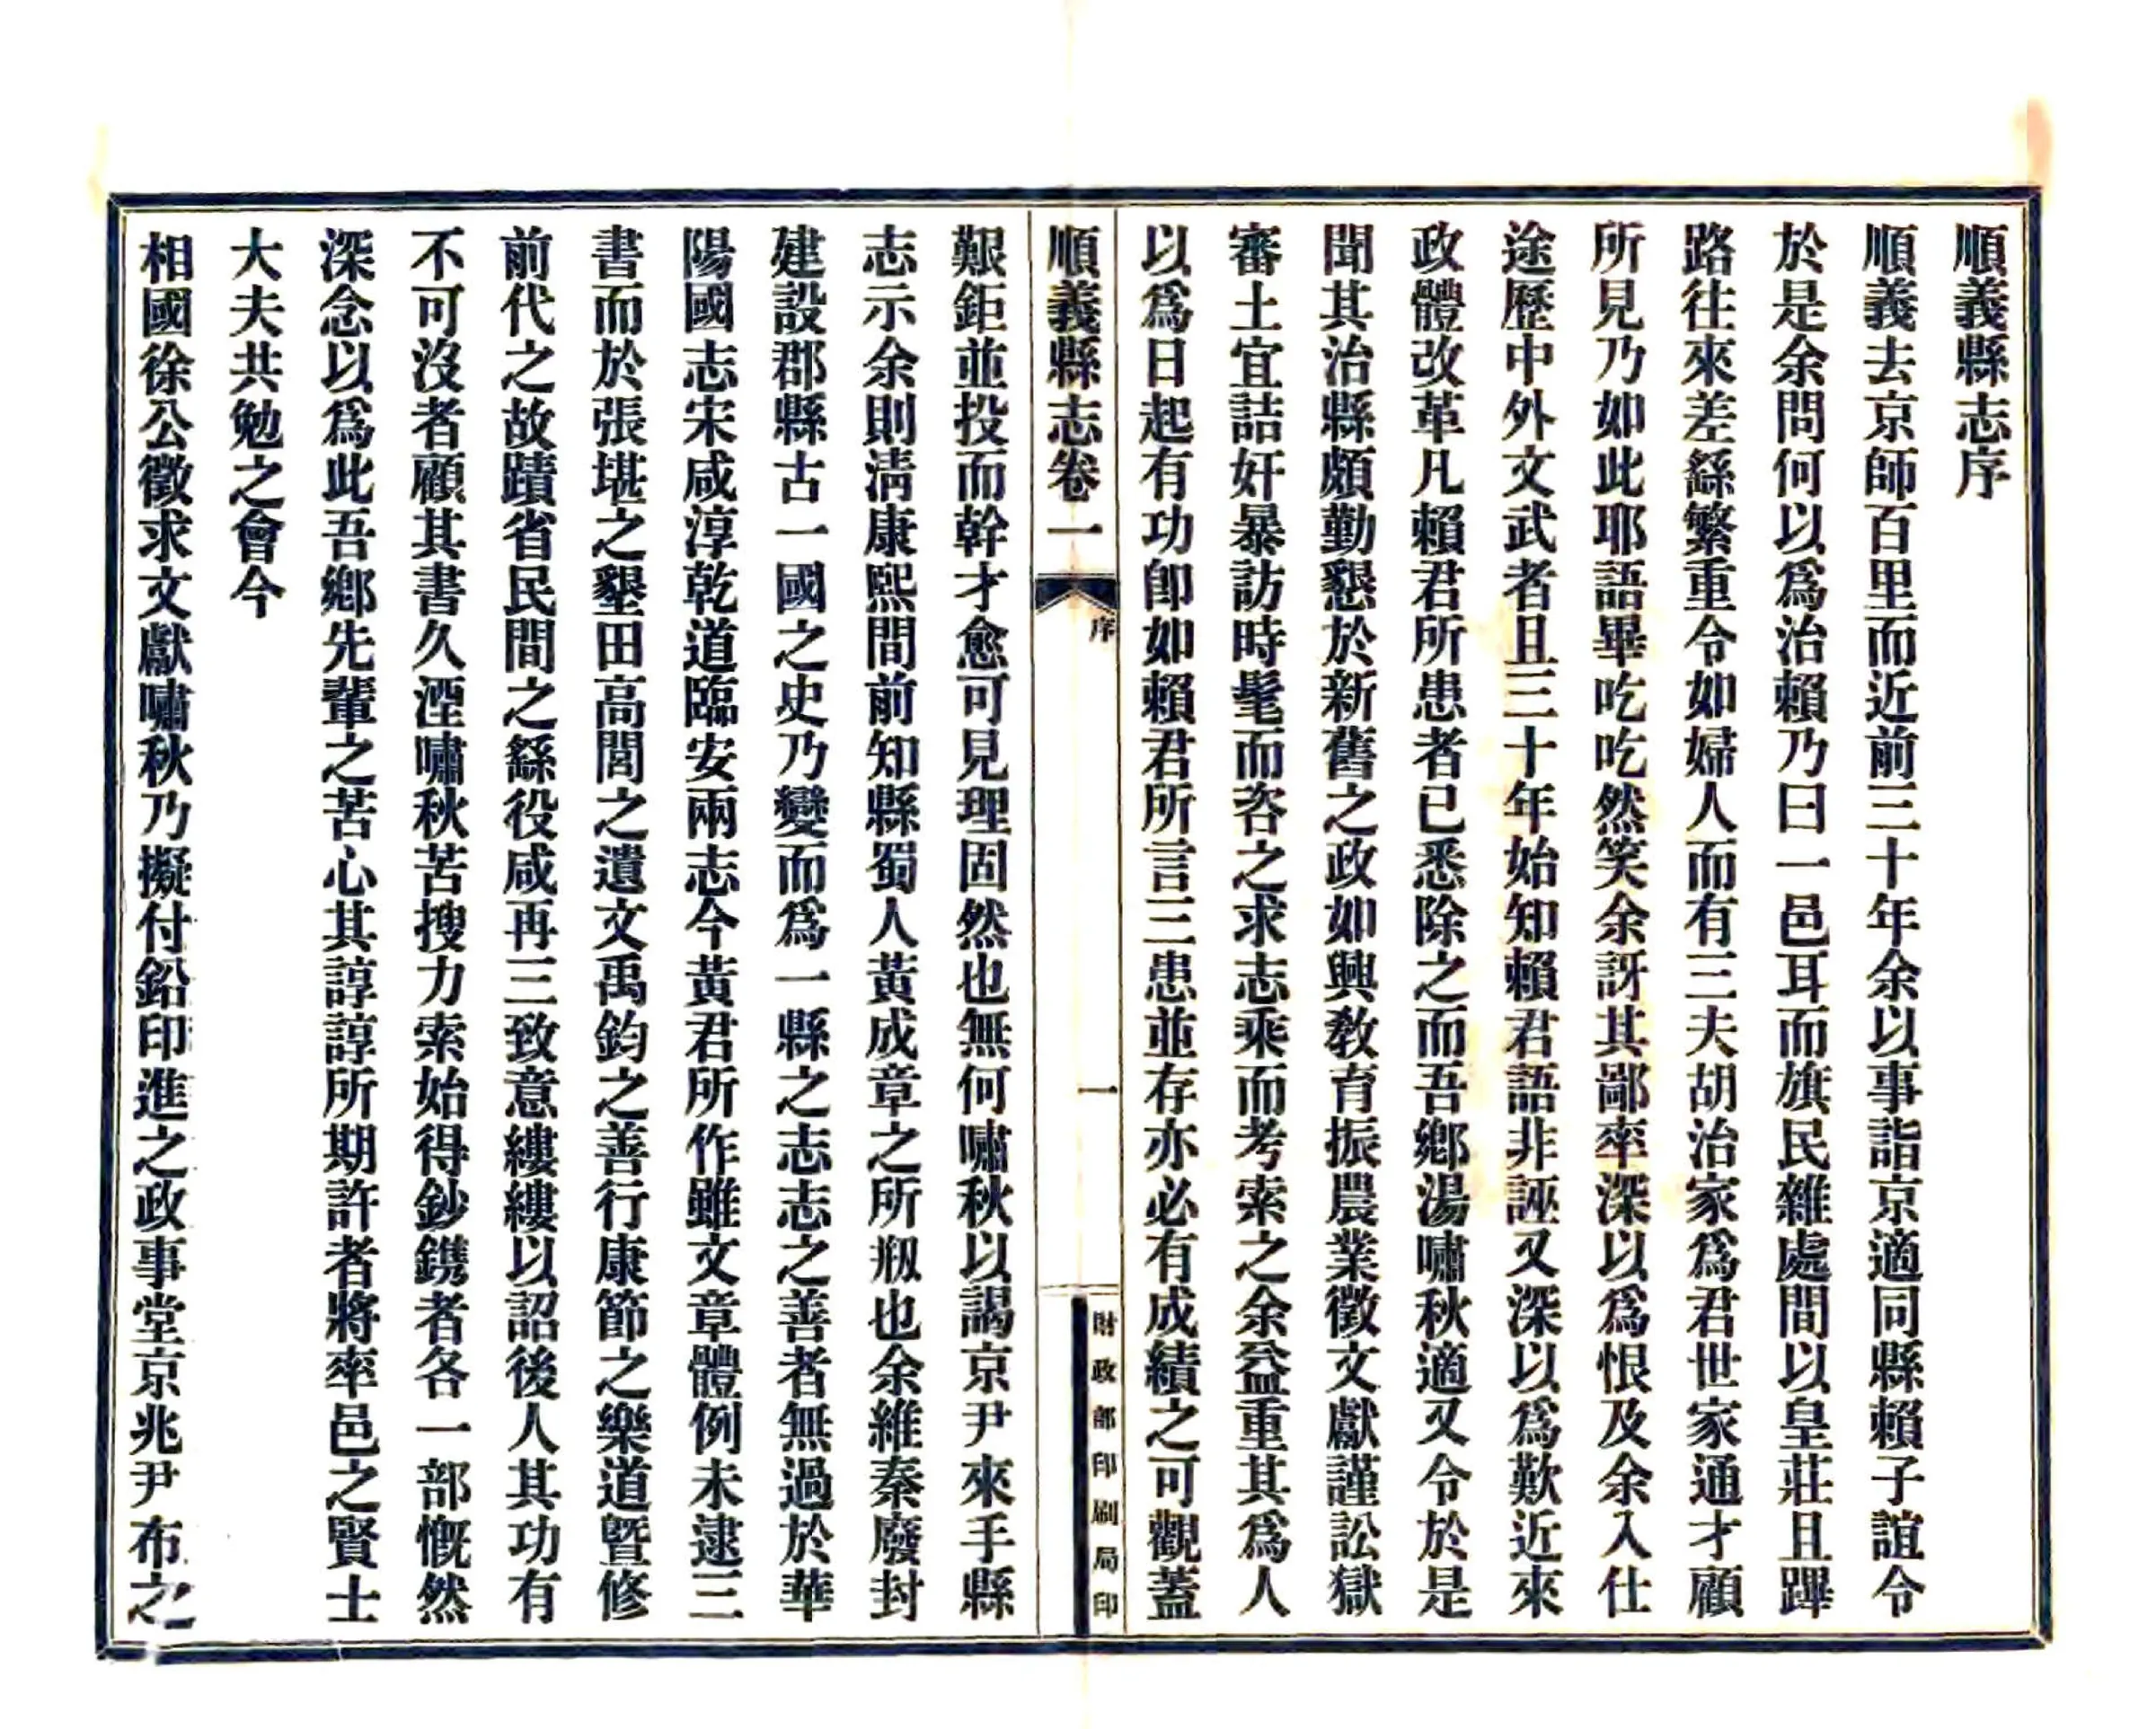 順義縣志序
順義去京師百里而近前三十年余以事詣京適同縣賴子誼令
於是余問何以爲治賴乃曰一邑耳而旗民雜處間以皇莊且蹕
路往來差繇繁重令如婦人而有三夫胡治家爲君世家通才顧
所見乃如此耶語畢吃吃然笑余訝其鄙率深以爲恨及余入仕
途歷中外文武者且三十年始知賴君語非誣又深以爲歎近來
政體改革凡賴君所患者已悉除之而吾鄉湯嘯秋適又令於是
聞其治縣頗勤懇於新舊之政如興教育振農業徵文獻謹訟獄
審土宜詰奸暴訪時髦而咨之求志乘而考索之余益重其爲人
以爲日起有功卽如賴君所言三患並存亦必有成績之可觀蓋
順義縣志卷一
序
一
財政部印刷局印
艱鉅並投而幹才愈可見理固然也無何嘯秋以謁京尹來手縣
志示余則淸康熙間前知縣蜀人黃成章之所剏也余維秦廢封
建設郡縣古一國之史乃變而爲一縣之志志之善者無過於華
陽國志宋咸淳乾道臨安兩志今黃君所作雖文章體例未逮三
書而於張堪之墾田高閭之遺文禹鈞之善行康節之樂道曁修
前代之故蹟省民間之繇役咸再三致意縷縷以詔後人其功有
不可沒者顧其書久湮嘯秋苦搜力索始得鈔鐫者各一部慨然
深念以爲此吾鄉先輩之苦心其諄諄所期許者將率邑之賢士
大夫共勉之會今
相國徐公徵求文獻嘯秋乃擬付鉛印進之政事堂京兆尹布之